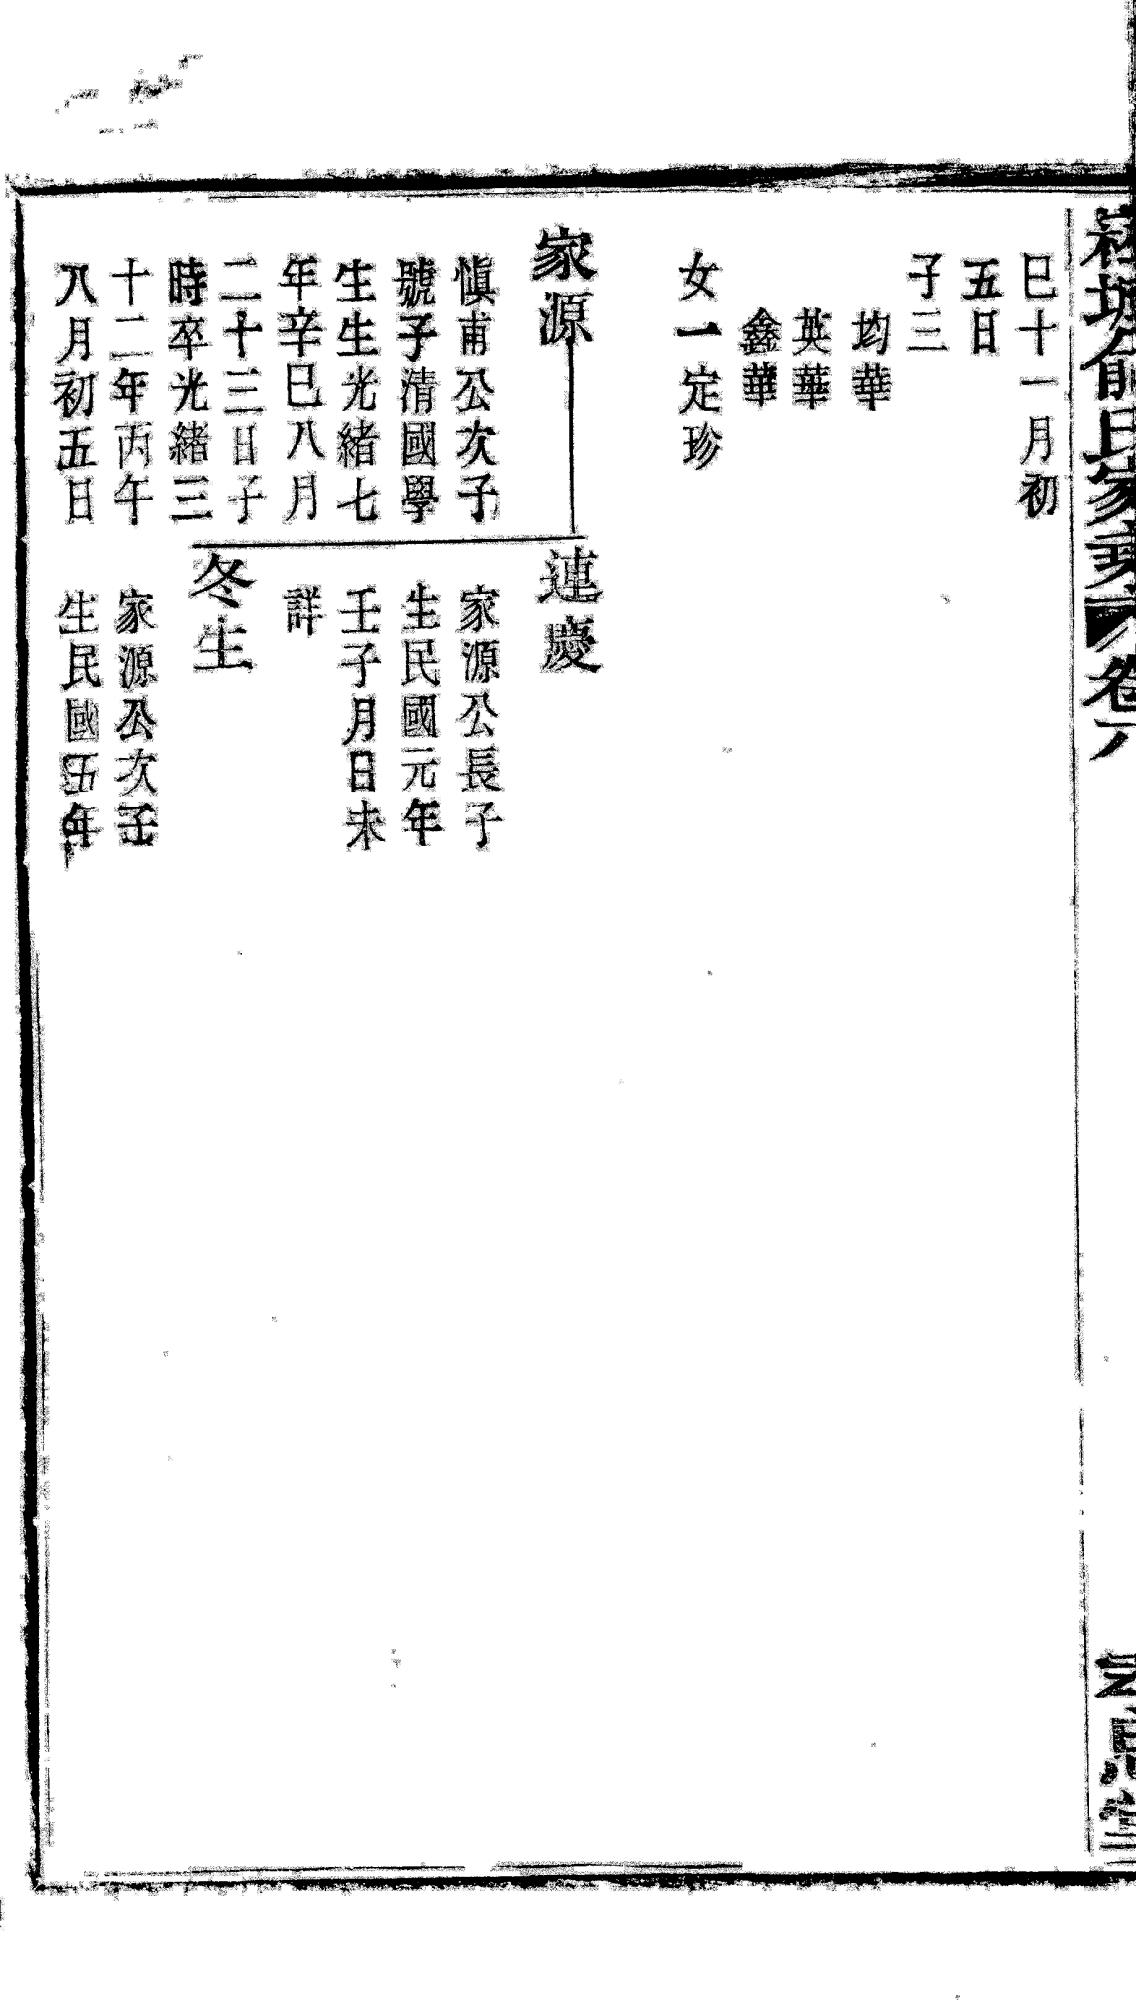 俞氏家乘 卷八
巳十一月初
五日
子三
均華
英華
鑫華
女一定珍
家源
慎甫公次子
號子清國學
生生光緒七
年辛巳八月
二十三日子
時卒光緒三
十二年丙午
八月初五日
連慶
家源公長子
生民國元年
壬子月日未
詳
冬生
家源公次子
生民國五年